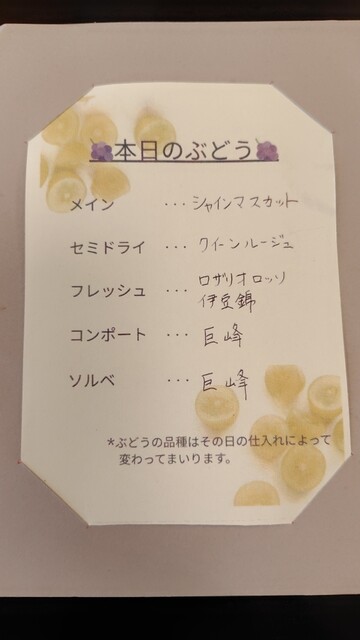 本日のぶどう
メイン ･･･ シャインマスカット
セミドライ ･･･ クイーンルージュ
フレッシュ ･･･ ロザリオロッソ
伊豆錦
コンポート ･･･ 巨峰
ソルベ ･･･ 巨峰
*ぶどうの品種はその日の仕入れによって
変わってまいります。